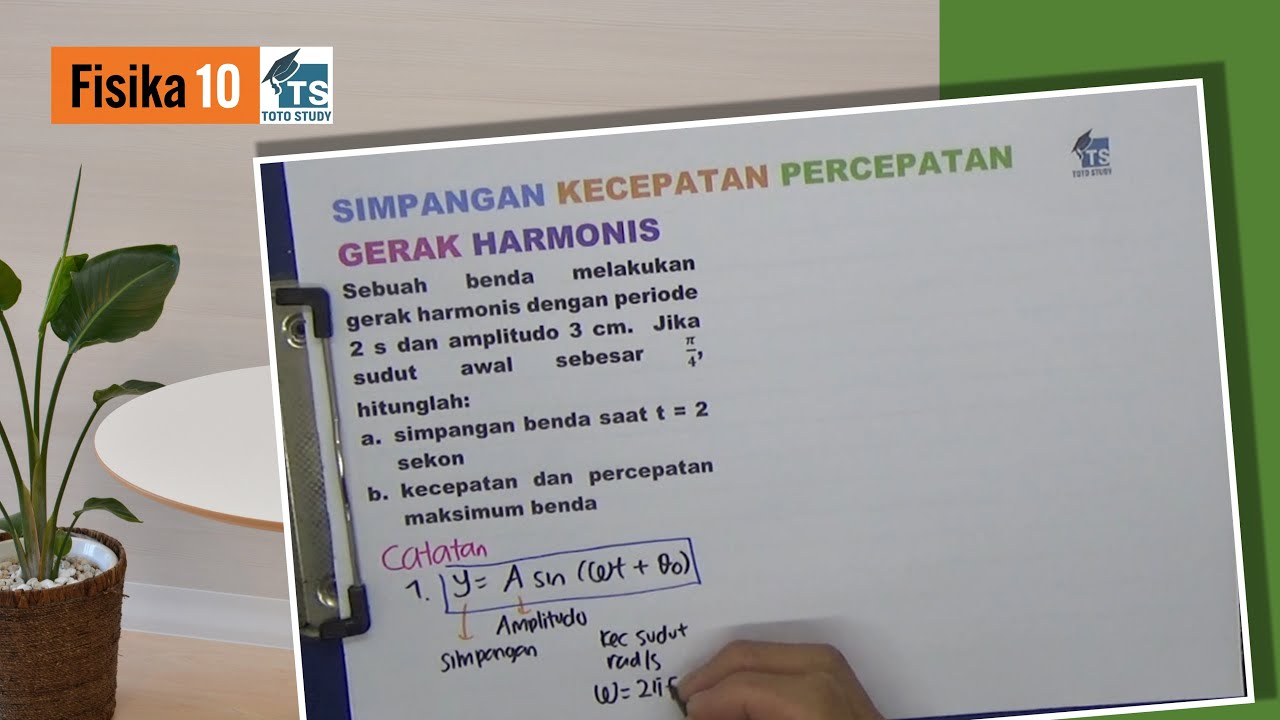 Fisika 10
TS
TOTO STUDY
TS
TOTO STUDY
SIMPANGAN KECEPATAN PERCEPATAN
GERAK HARMONIS
Sebuah benda melakukan
gerak harmonis dengan periode
2 s dan amplitudo 3 cm. Jika
sudut awal sebesar π/4,
hitunglah:
a. simpangan benda saat t = 2
sekon
b. kecepatan dan percepatan
maksimum benda
Catatan
1. y = A sin (ωt + θ₀)
Amplitudo
simpangan
kec sudut
rad/s
ω = 2π f